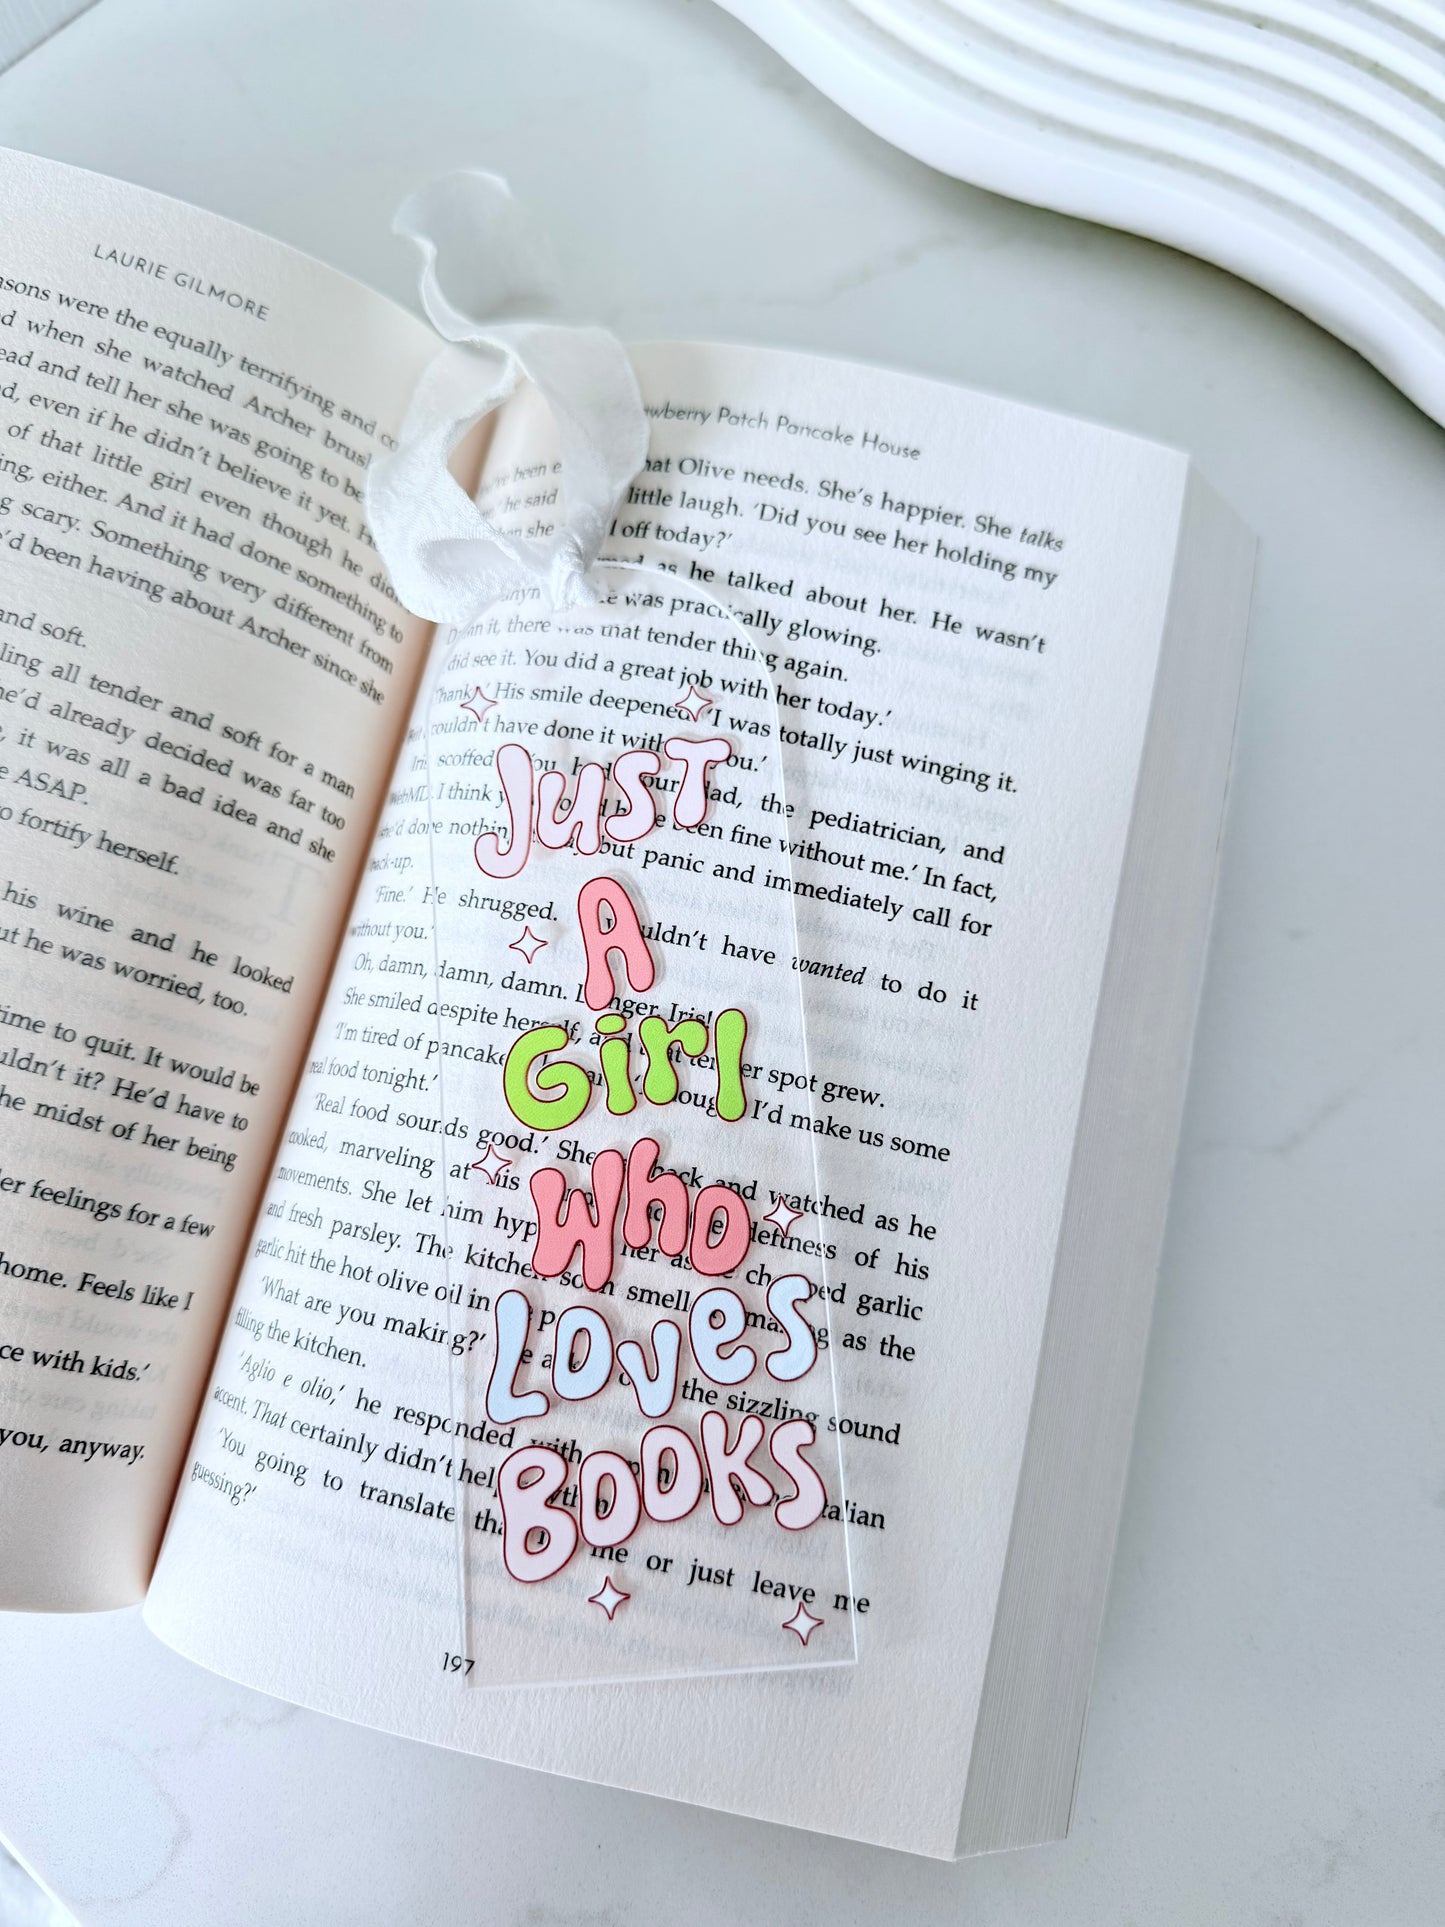 LAURIE GILMORE
asons were the equally terrifying and
d when she watched Archer brus
ead and tell her she was going to be
d, even if he didn't believe it yet. H
of that little girl even though he did
ing, either. And it had done something to
g scary. Something very different from
e'd been having about Archer since she
and soft.
ling all tender and soft for a man
he'd already decided was far too
it was all a bad idea and she
e ASAP.
o fortify herself.
his wine and he looked
ut he was worried, too.
time to quit. It would be
uldn't it? He'd have to
he midst of her being
er feelings for a few
home. Feels like I
ce with kids.'
you, anyway.
wberry Patch Pancake House
been hat Olive needs. She's happier. She talks
he said little laugh. 'Did you see her holding my
she I off today?'
as he talked about her. He wasn't
was practically glowing.
it, there was that tender thing again.
did see it. You did a great job with her today.'
Thanks.' His smile deepened. 'I was totally just winging it.
couldn't have done it without you.'
Iris scoffed. 'You had your dad, the pediatrician, and
WebMD. I think been fine without me.' In fact,
she'd done nothing but panic and immediately call for
back-up.
'Fine.' He shrugged. wouldn't have wanted to do it
without you.'
Oh, damn, damn, damn. Danger, Iris!
She smiled despite herself, and that tender spot grew.
'I'm tired of pancakes I'd make us some
real food tonight.'
'Real food sounds good.' She back and watched as he
cooked, marveling at his deftness of his
movements. She let him her as he chopped garlic
and fresh parsley. The kitchen soon smelled amazing as the
garlic hit the hot olive oil in the
'What are you making?' the sizzling sound
filling the kitchen.
'Aglio e olio,' he responded with Italian
accent. That certainly didn't help
'You going to translate that me or just leave me
guessing?'
197
JUST
A
GIRL
WHO
LOVES
BOOKS